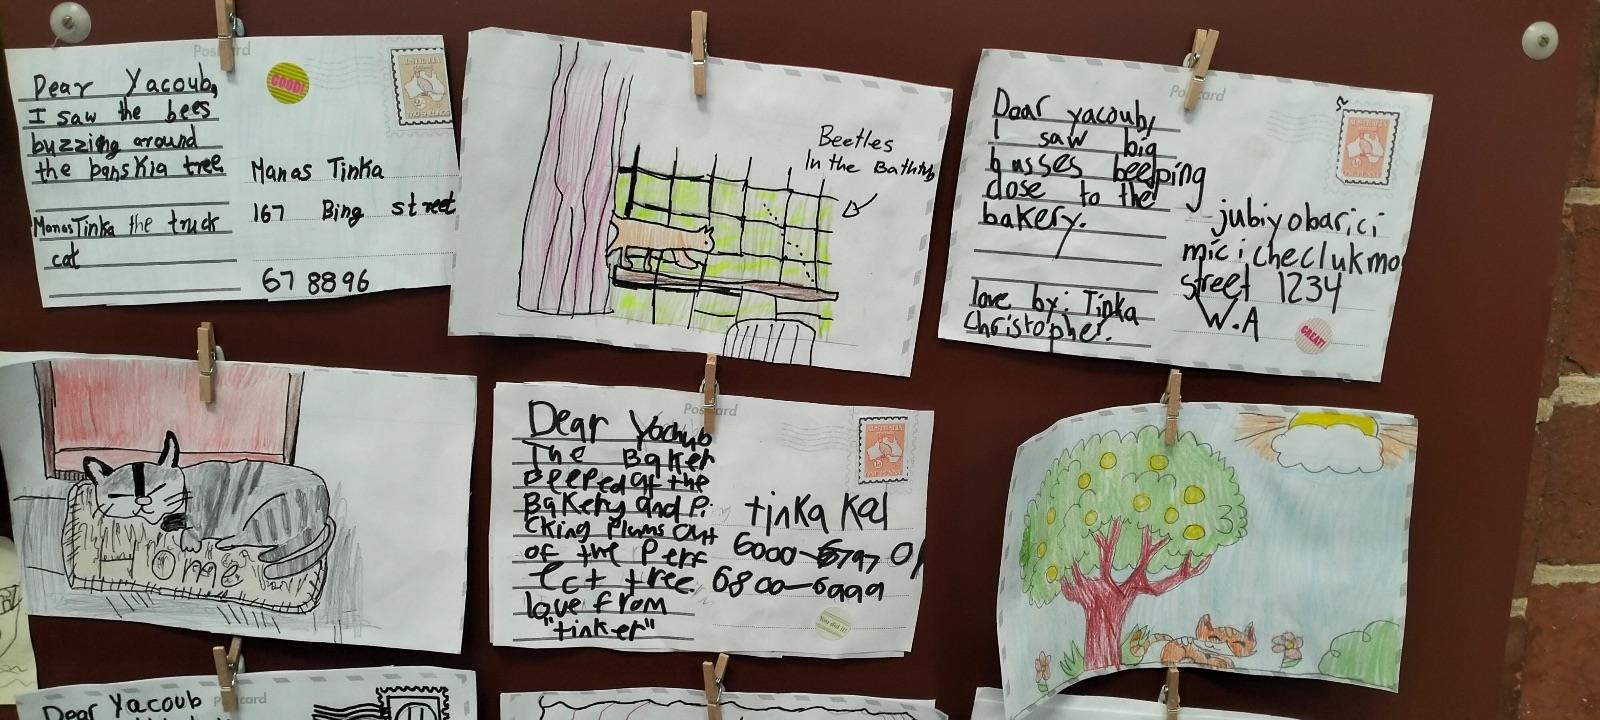 Postcard
Dear Yacoub,
I saw the bees
buzzing around
the banskia tree
Manas Tinka the truck
cat
GOOD!
Manas Tinka
167 Bing street
67 8896
Beetles
In the Bathtub
Postcard
Dear yacoub,
I saw big
busses beeping
close to the
bakery.
love by: Tinka
Christopher.
AUSTRALIA
jubiyobarici
micicheclukmo
street 1234
W.A
GREAT!
Postcard
Dear Yacoub
The Baker
Beeped at the
Bakery and Pi
cking Plums Out
of the Perf
ect tree.
love from
"tinker"
AUSTRALIA
tinka kal
6000-6797 0/
6800-6999
You did it!
Dear Yacoub
Postcard